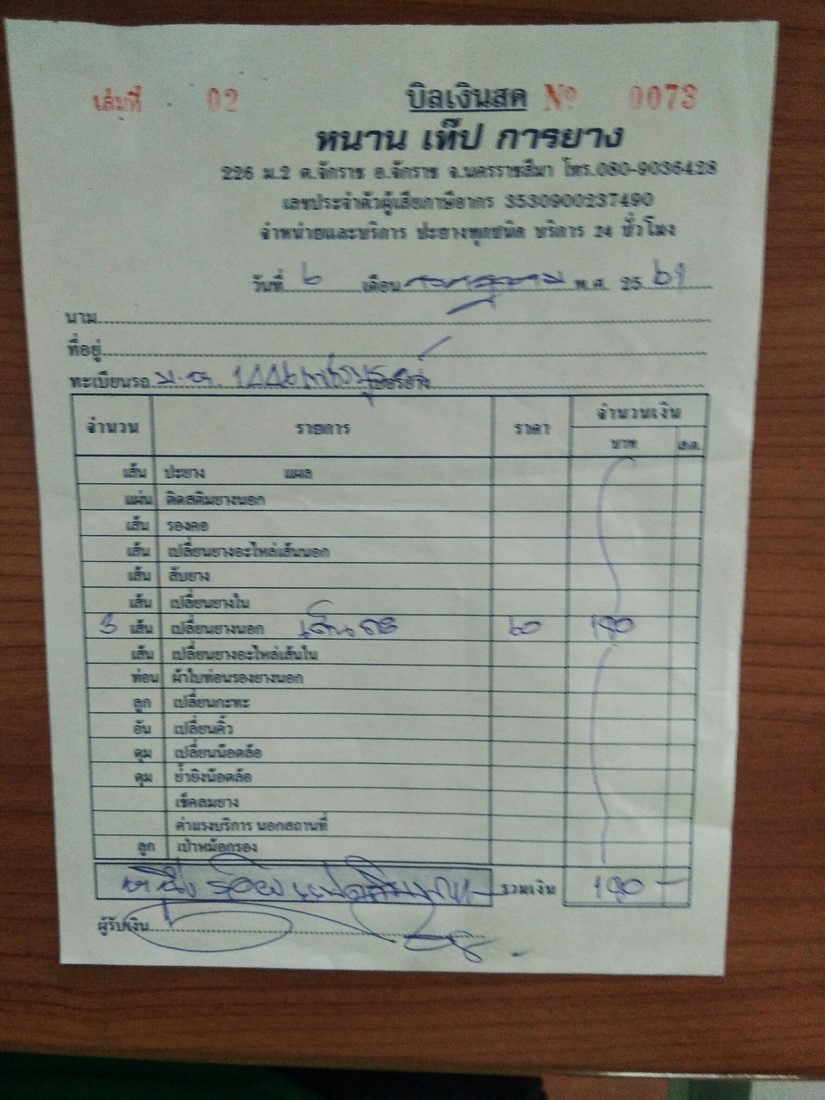 เล่มที่ 02 บิลเงินสด Nº 0073
หนาน เท๊ป การยาง
226 ม.2 ต.จักราช อ.จักราช จ.นครราชสีมา โทร.080-9036428
เลขประจำตัวผู้เสียภาษีอากร 3530900237490
จำหน่ายและบริการ ปะยางทุกชนิด บริการ 24 ชั่วโมง
วันที่ ๖ เดือน พ.ศ. 25 ๖๑
นาม
ที่อยู่
ทะเบียนรถ
จำนวน รายการ ราคา จำนวนเงิน
บาท ส.ต.
เส้น ปะยาง แผล
แผ่น ติดสตีมยางนอก
เส้น รองคอ
เส้น เปลี่ยนยางอะไหล่เส้นนอก
เส้น สับยาง
เส้น เปลี่ยนยางใน
3 เส้น เปลี่ยนยางนอก ๖๐ ๑๘๐
เส้น เปลี่ยนยางอะไหล่เส้นใน
ท่อน ผ้าใบท่อนรองยางนอก
ลูก เปลี่ยนกะทะ
อัน เปลี่ยนคิ้ว
ดุม เปลี่ยนน๊อตล้อ
ดุม ย้ำยิงน๊อตล้อ
เช็คลมยาง
ค่าแรงบริการ นอกสถานที่
ลูก เป่าหม้อกรอง
หนึ่งร้อยแปดสิบบาท รวมเงิน ๑๘๐ -
ผู้รับเงิน